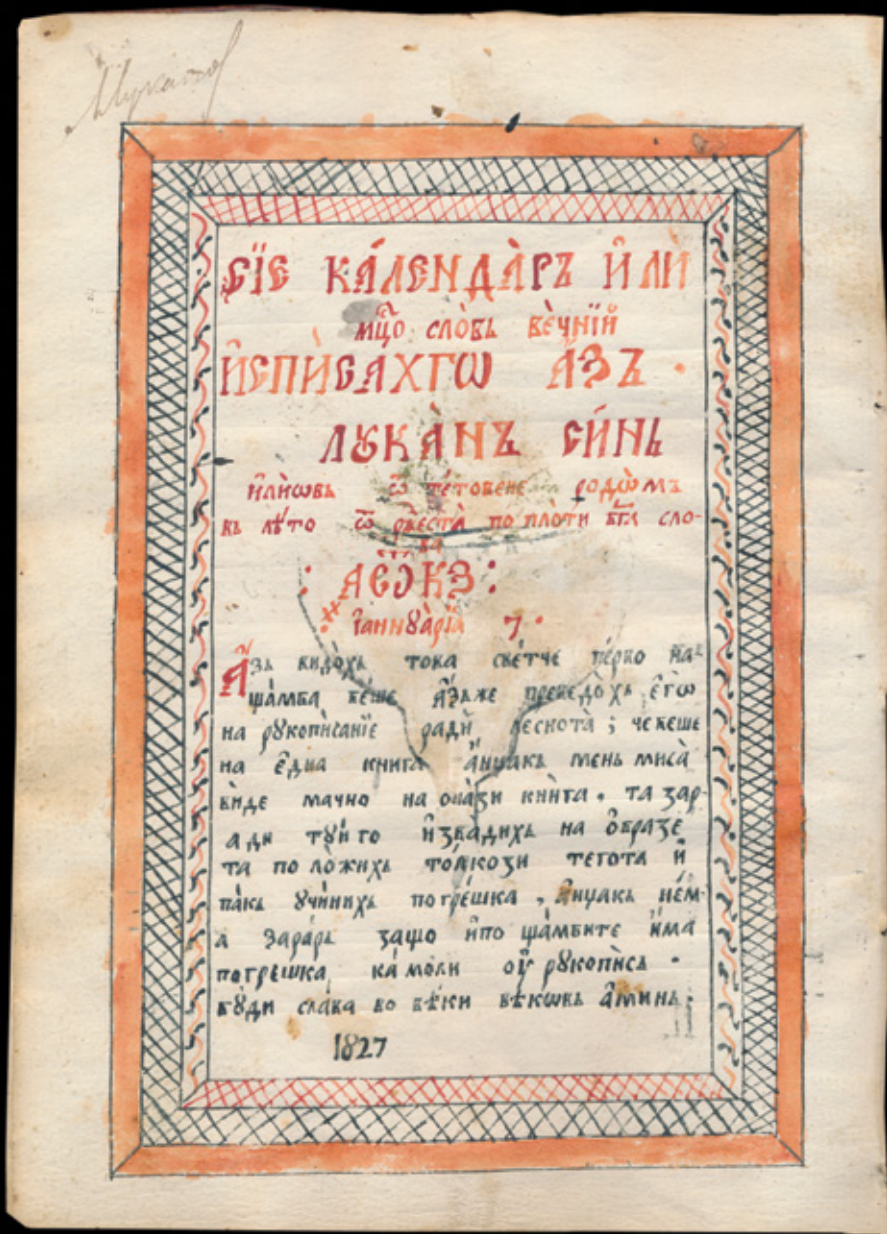 СЇЕ КА́ЛЕНДА̀РЪ И҆ ЛЍ
мц҃о сло̀вь вѐчнїй
И҆СПѝСАХГѠ А҆́ЗЪ ·
ЛꙋКА̀НЪ СИ́НЬ
и҆лѝѡвь ѿ те́товене родѡ̀мъ
въ лѣ́то ѿ рж҃еста̀ по пло̀ти бг҃а сло-
ва
: АѠКЗ :
і҆аннꙋа́рїа 7 ·
А҆́зь видо́хь тока све́тче пе́рво на
ща́мба бе́ше а҆́зьже преведо́хь е҆гѡ̀
на рꙋкопѝсанїе радѝ леснота ; че беше
на е҆́дна книга а҆́ншакь мень миса̀
виде мачно на о́ная̀зи кнѝга . та зар-
ади тꙋй го и҆звадихь на о҆́бразе
та поло̀жихь то́лкози тегота и҆́
па́кь ꙋчи́нихь погре́шка , а҆́ншакь не́м-
а зара́рь защо и҆по ща́мбите и҆́ма
погрешка ка́моли оу҆ рꙋкопѝсь ·
бꙋ́ди сла́ва во вѣ́ки вѣ́кѡвь а҆́минь .
1827